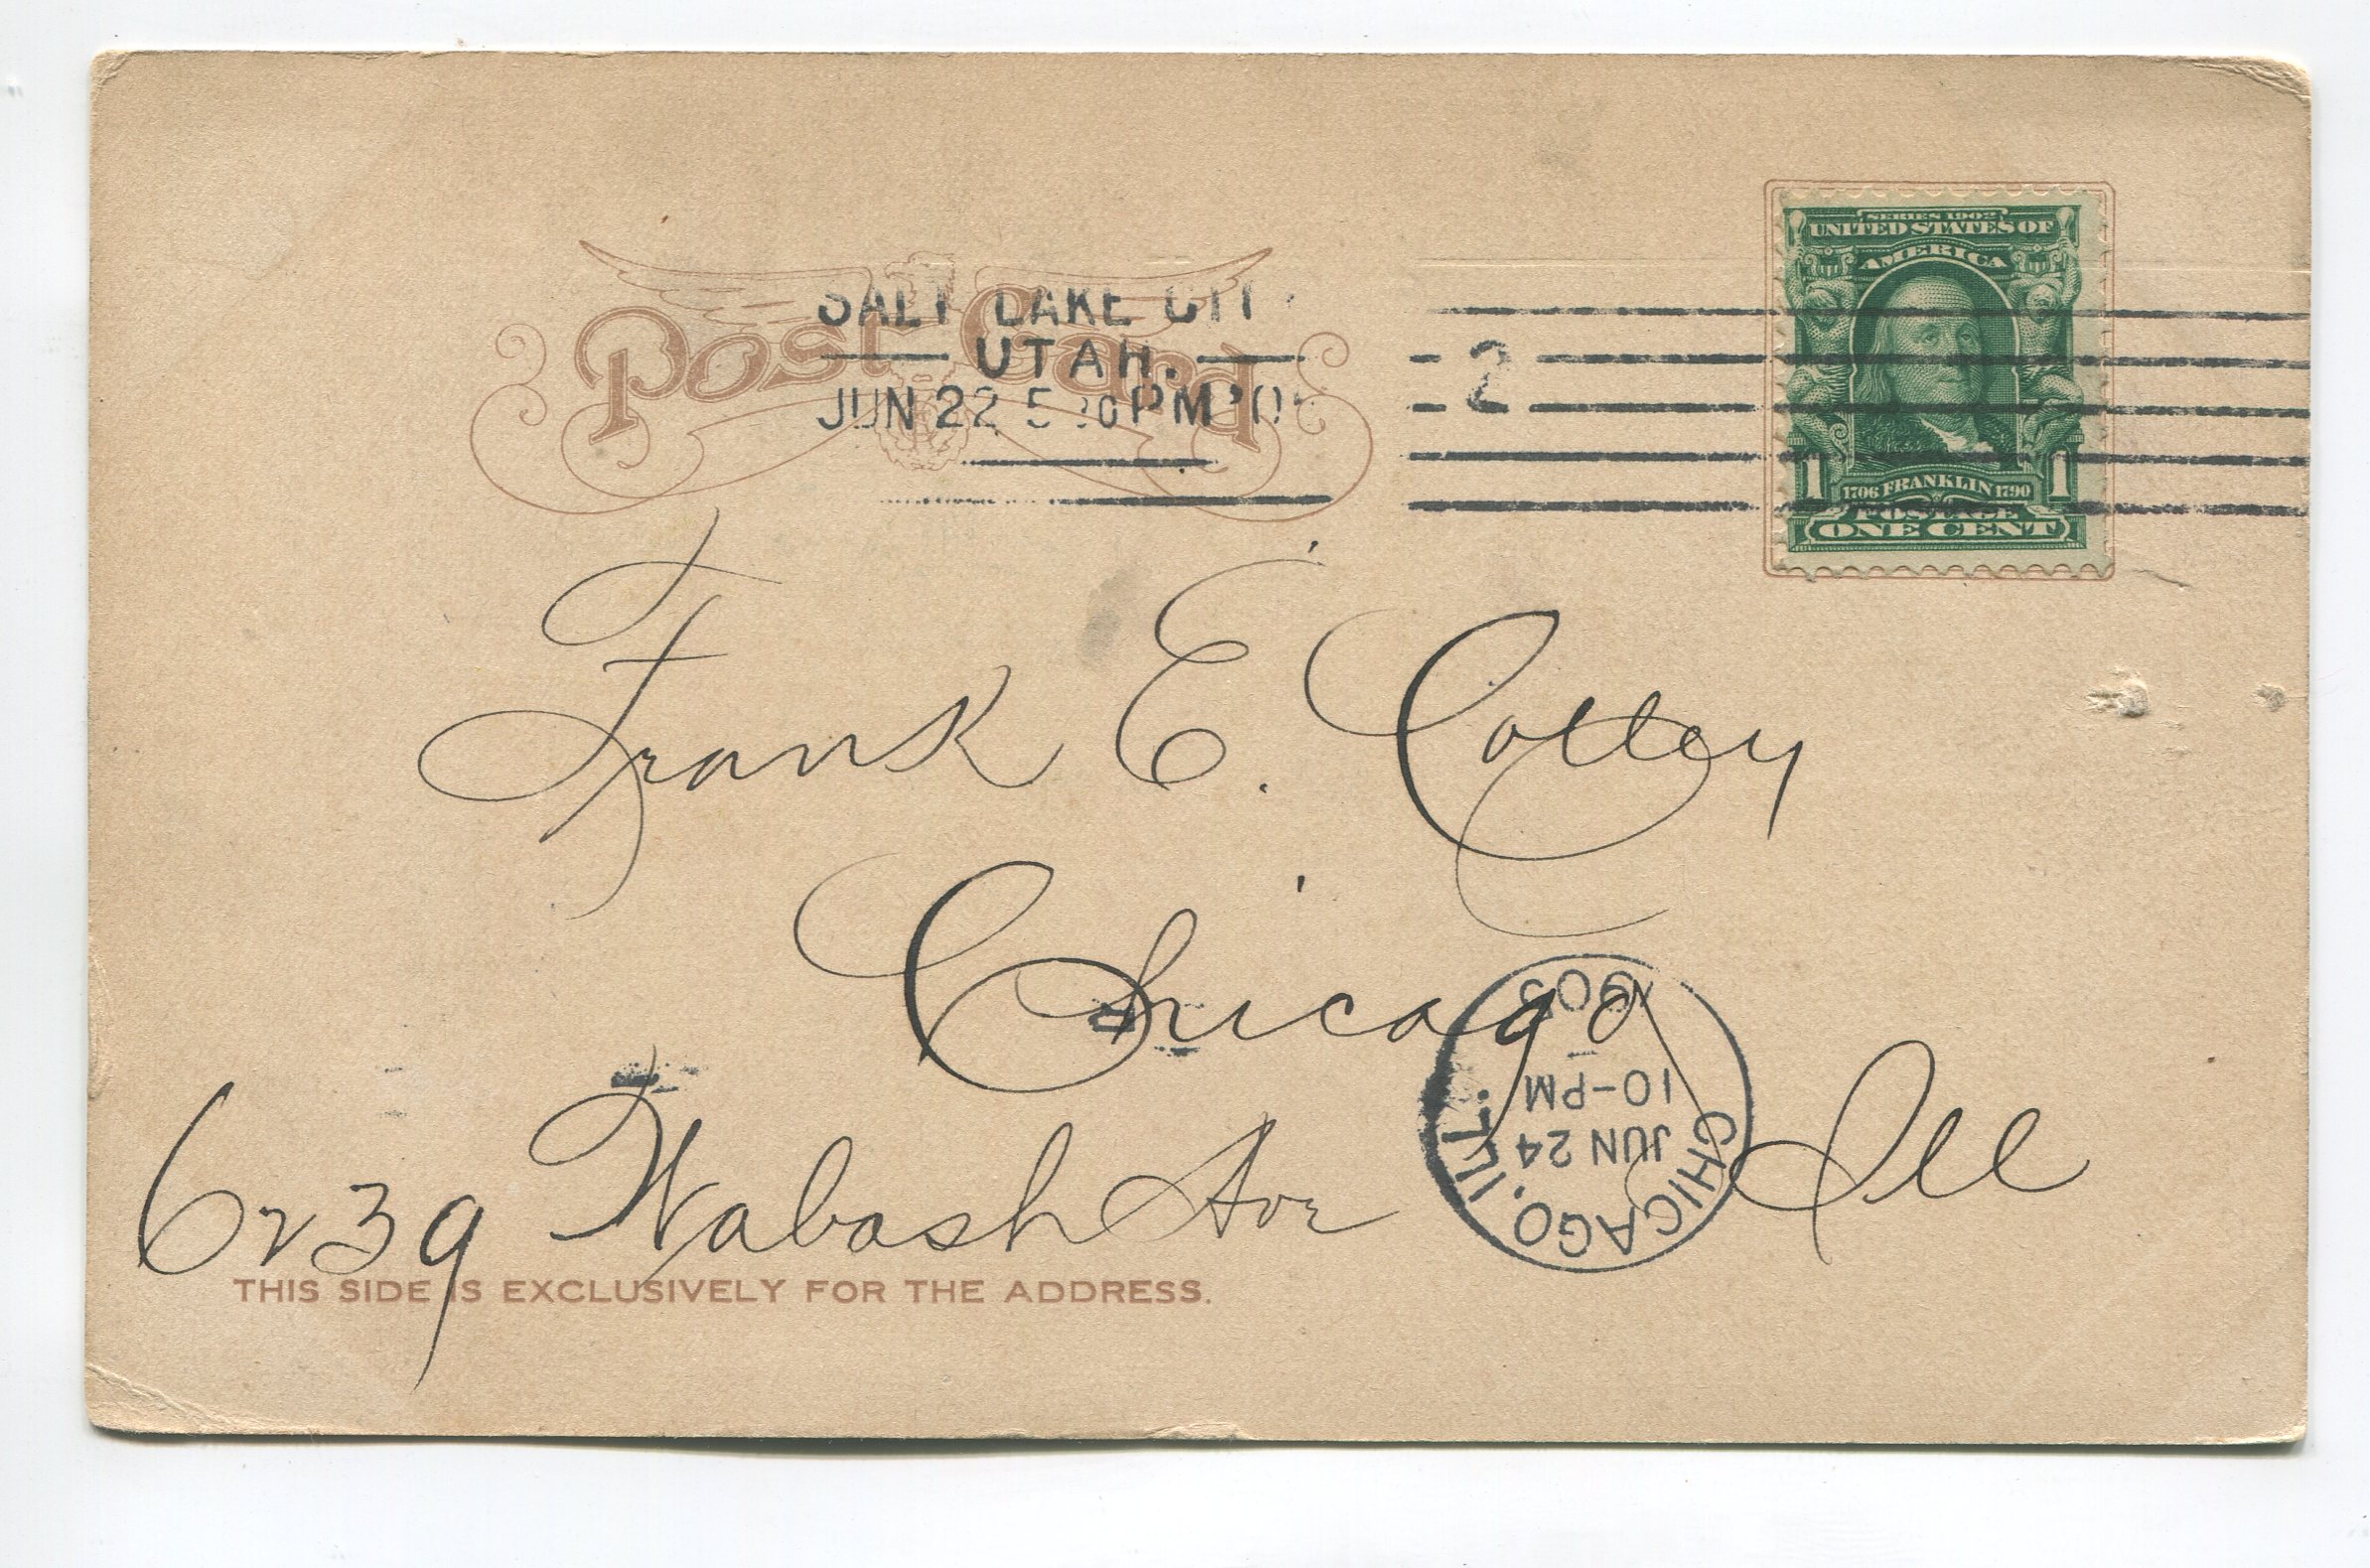 Post Card
SALT LAKE CIT
UTAH.
JUN 22 5 30 PM '0
2
SERIES 1902
UNITED STATES OF
AMERICA
1 1706 FRANKLIN 1790 1
POSTAGE
ONE CENT
Frank E. Cottey
Chicago
Ill
6239 Wabash Ave
CHICAGO, ILL.
JUN 24
10-PM
THIS SIDE IS EXCLUSIVELY FOR THE ADDRESS.